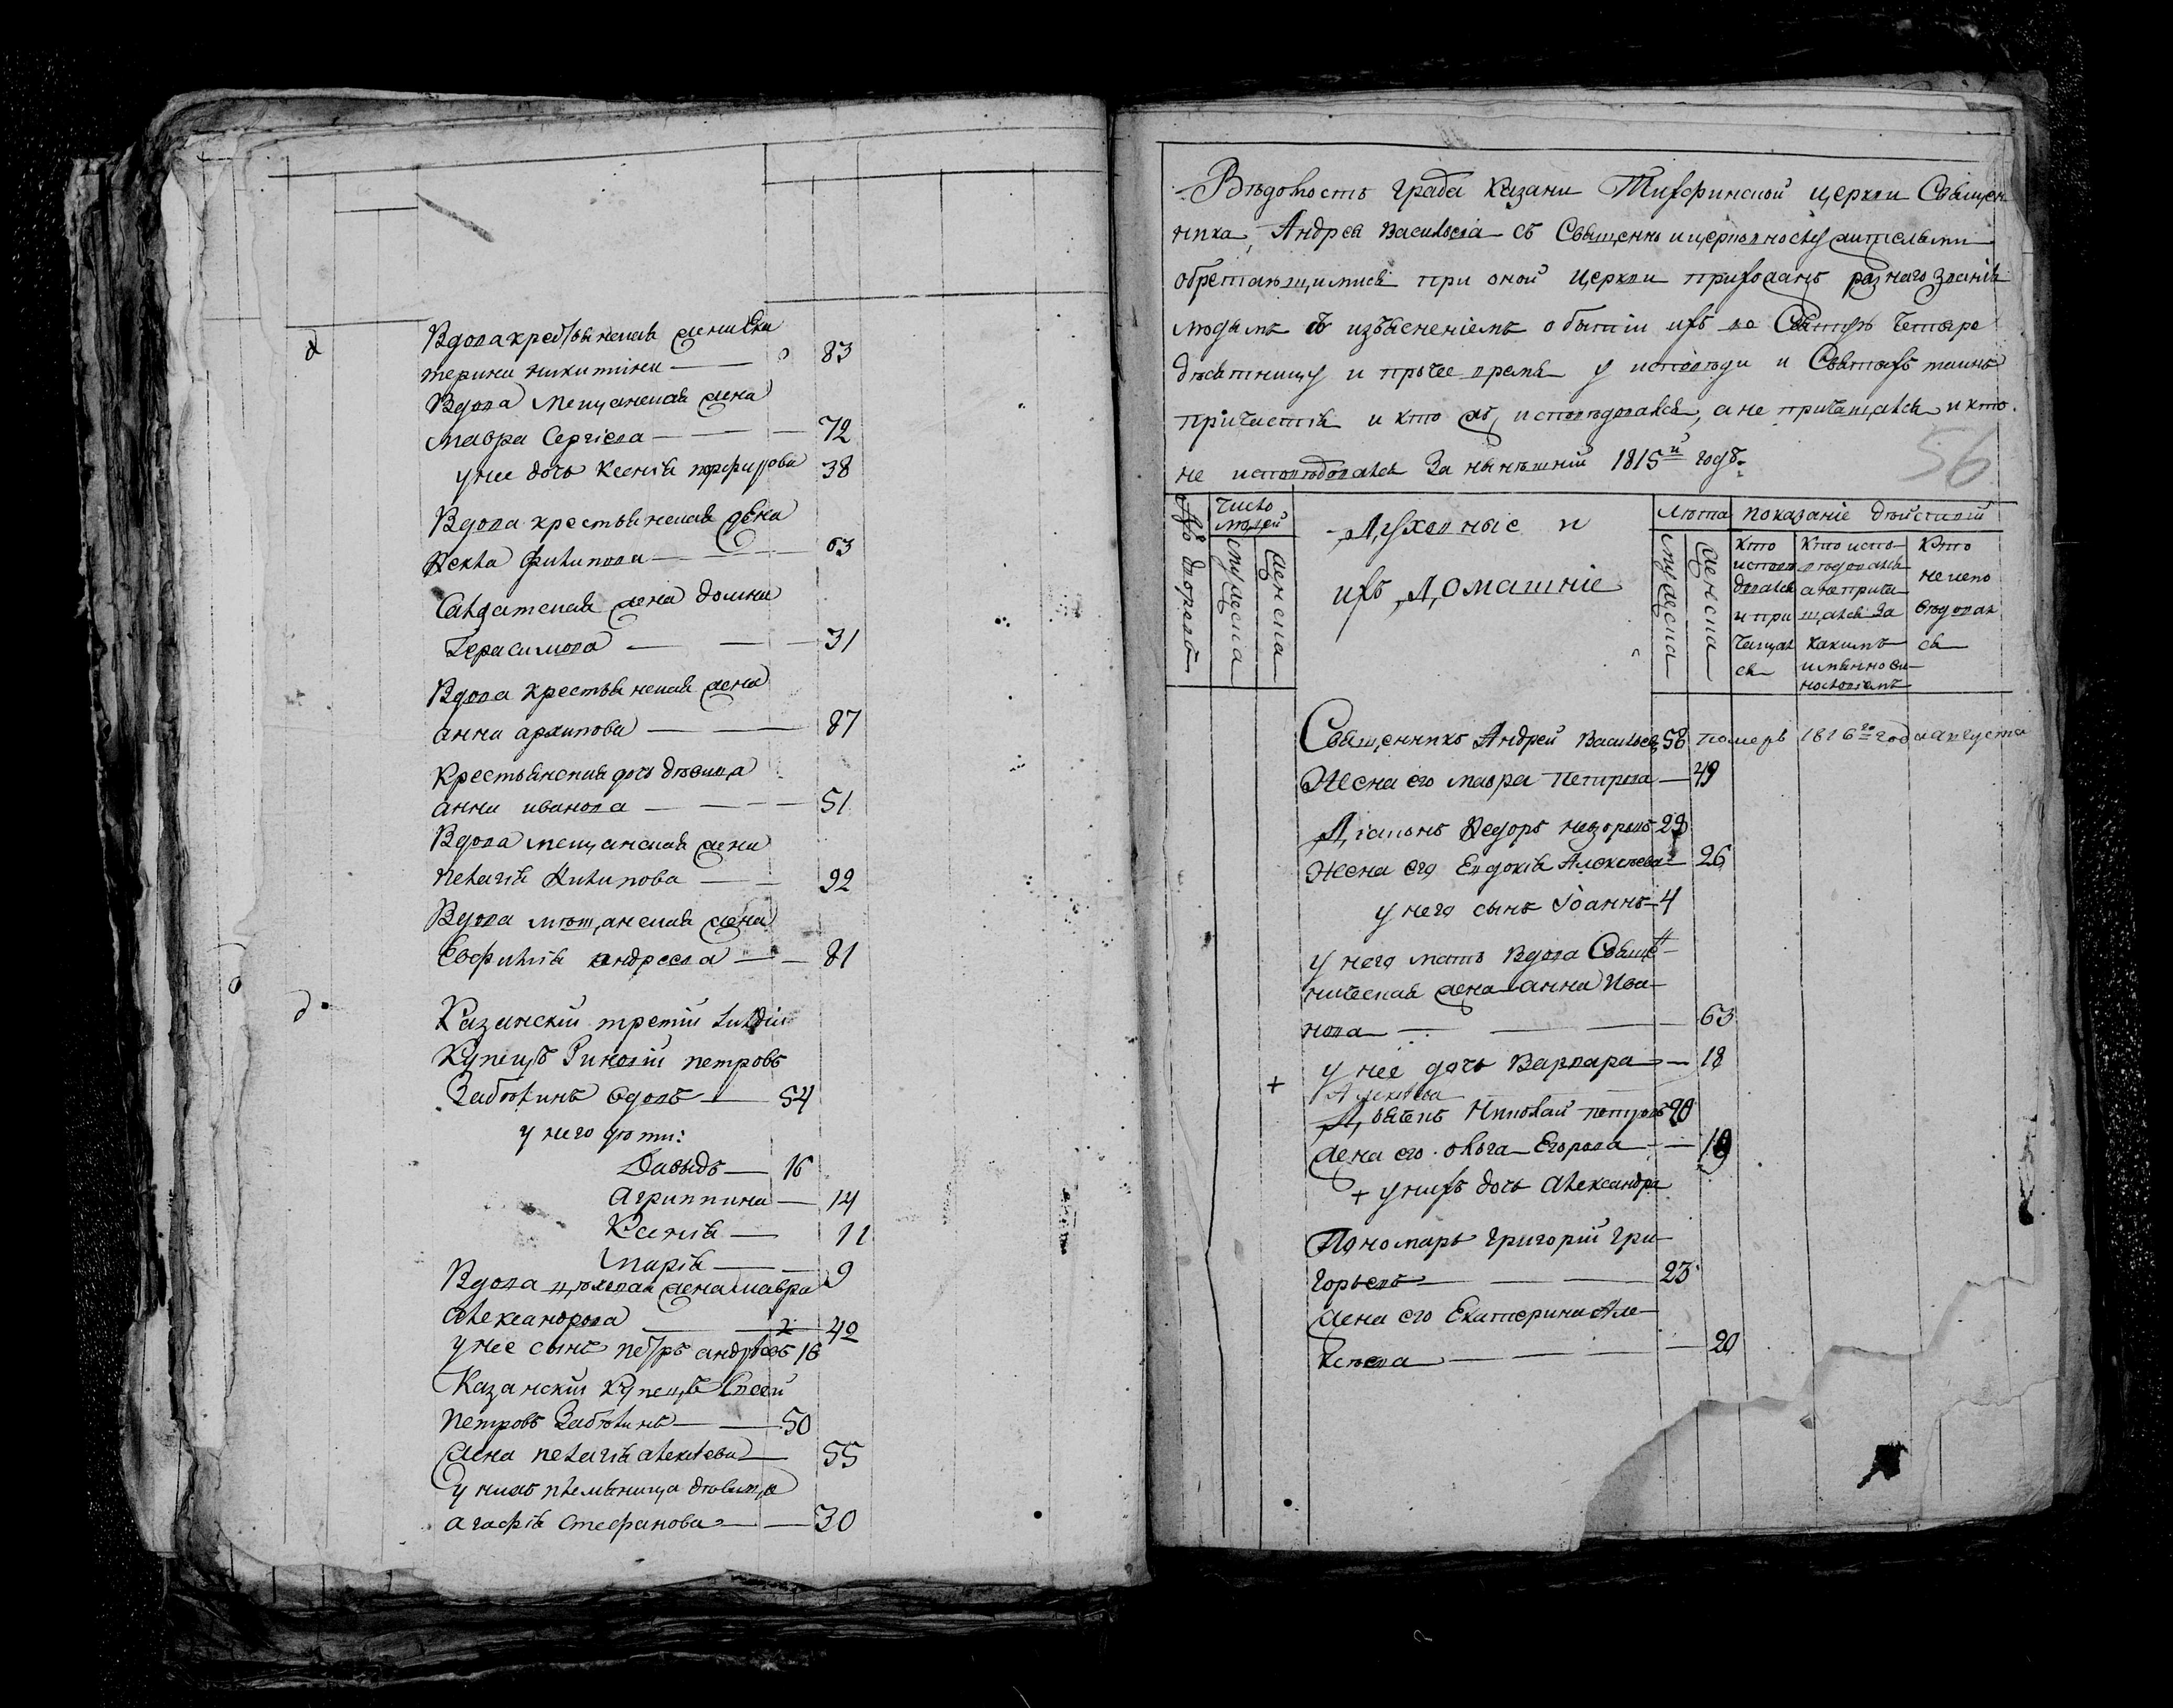 Вдова крестьянская жена Ека
терина никитина — 83
Вдова мещанская жена
мавра Сергиева — 72
у нее дочь Ксенiя порфирова 38
Вдова крестьянская жена
Фекла филипова — 63
Салдатская жена домна
Герасимова — 31
Вдова крестьянская жена
анна архипова — 87
Крестьянская дочь девица
анна иванова — 51
Вдова мещанская жена
пелагiя Филипова — 92
Вдова мещанская жена
андреева — 81
Казанский третiй гилдiи
Купецъ петровъ
Заботинъ вдовъ — 54
у него дѣти:
Давыдъ — 16
Агриппина — 14
Ксенiя — 11
марiя — 9
Вдова цѣховая жена мавра
александрова — 42
у нее сынъ петръ андреевъ 16
Казанский Купецъ
петровъ Заботинъ — 50
жена пелагiя алексѣева — 55
у нихъ племяница дѣвица
агафiя стефанова — 30
Вѣдомость града Казани Тихфинской церкви Священ
ника Андрея Васильева съ Священно и церковнослужительми
обретающимися при оной церкви прихожанъ разнаго званiя
людямъ съ изъясненiемъ о бытiи ихъ во Святую Четыре
десятницу и прочее время у исповѣди и Святыхъ таинъ
причастiя и кто жъ исповѣдовался, а не причащался и кто
не исповѣдовался За нынѣшнiй 1815й годъ.
56
Число дворовъ
Число людей
мужеска
женска
Духовные и
ихъ Домашнiе
лѣта
мужеска
женска
показанiе дѣйствiй
Кто исповѣдовался и причащался
Кто исповѣдовался а не причащался За какимъ имянно винословiемъ
Кто не исповѣдовался
Священникъ Андрей Васильевъ 58 померъ 1816го года августа
Жена его мавра петрова — 49
Дiаконъ Федоръ невзоровъ 29
Жена его Евдокiя Алексѣева — 26
у него сынъ Iоаннъ — 4
у него мать Вдова Свяще
ническая жена анна Ива
нова — 63
у нее дочь Варвара — 18
+ Алексѣева
Дьячекъ Николай петровъ 20
жена его олга Егорова — 19
+ у нихъ дочь александра
Пономарь григорiй гри
горьевъ — 23
жена его Екатерина Але
ксѣева — 20